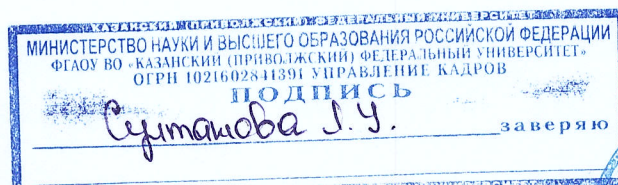 КАЗАНСКИЙ (ПРИВОЛЖСКИЙ) ФЕДЕРАЛЬНЫЙ УНИВЕРСИТЕТ
МИНИСТЕРСТВО НАУКИ И ВЫСШЕГО ОБРАЗОВАНИЯ РОССИЙСКОЙ ФЕДЕРАЦИИ
ФГАОУ ВО «КАЗАНСКИЙ (ПРИВОЛЖСКИЙ) ФЕДЕРАЛЬНЫЙ УНИВЕРСИТЕТ»
ОГРН 1021602841391 УПРАВЛЕНИЕ КАДРОВ
ПОДПИСЬ
Султанова Л.У.
заверяю